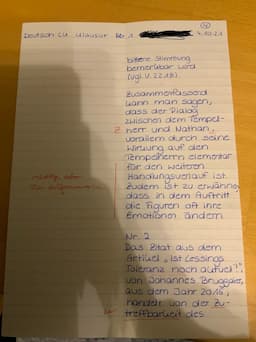 ④
Deutsch LK Klausur Nr. 1 7.10.21
bittere Stimmung
bemerkbar wird
(vgl. V. 22 ff.).
Zusammenfassend
kann man sagen,
dass der Dialog
zwischen dem Tempel-
Z herr und Nathan,
vorallem durch seine
Wirkung auf den
Tempelherrn elementar
für den weiteren
Handlungsverlauf ist.
Zudem ist zu erwähnen,
dass in dem Auftritt
die Figuren oft ihre
Emotionen ändern.
Nr. 2
Das Zitat aus dem
Artikel „Ist Lessings
Toleranz noch aktuell?",
von Johannes Bruggaier,
aus dem Jahr 2016,
handelt von der Zu-
treffbarkeit des